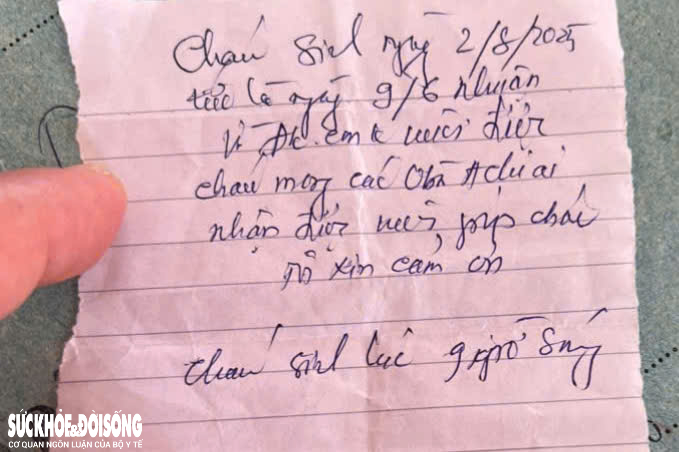 Cháu sinh ngày 2/8/2025
tức là ngày 9/6 nhuận
Vì ĐK. em k nuôi được
cháu mong các ObA chị ai
nhận được nuôi giúp cháu
nó xin cảm ơn
cháu sinh lúc 9 giờ sáng
SỨC KHỎE & ĐỜI SỐNG
CƠ QUAN NGÔN LUẬN CỦA BỘ Y TẾ